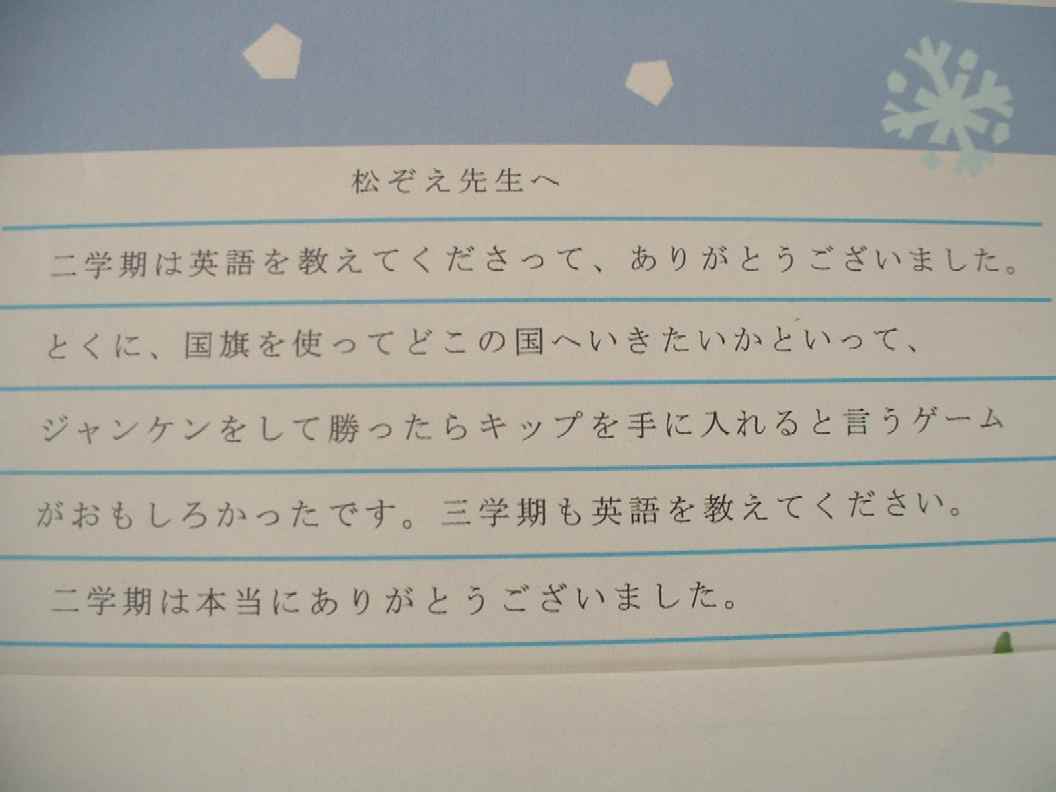 松ぞえ先生へ
二学期は英語を教えてくださって、ありがとうございました。
とくに、国旗を使ってどこの国へいきたいかといって、
ジャンケンをして勝ったらキップを手に入れると言うゲーム
がおもしろかったです。三学期も英語を教えてください。
二学期は本当にありがとうございました。